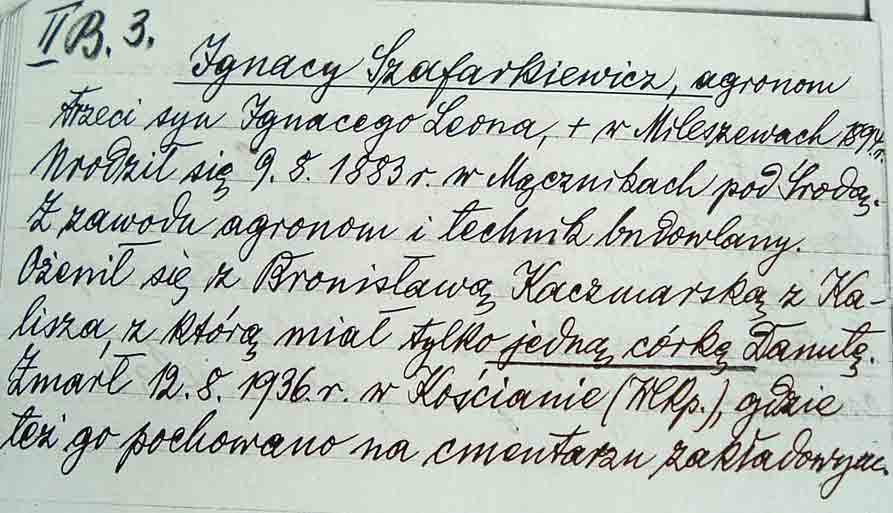 II B. 3.
Ignacy Szafarkiewicz, agronom
trzeci syn Ignacego Leona, + w Mileszewach 1894 r.
Urodził się 9. 8. 1883 r. w Mącznikach pod Środą.
Z zawodu agronom i technik budowlany.
Ożenił się z Bronisławą Kaczmarską z Ka-
lisza, z którą miał tylko jedną córkę Danutę.
Zmarł 12. 8. 1936 r. w Kościanie (Wlkp.), gdzie
też go pochowano na cmentarzu zakładowym.